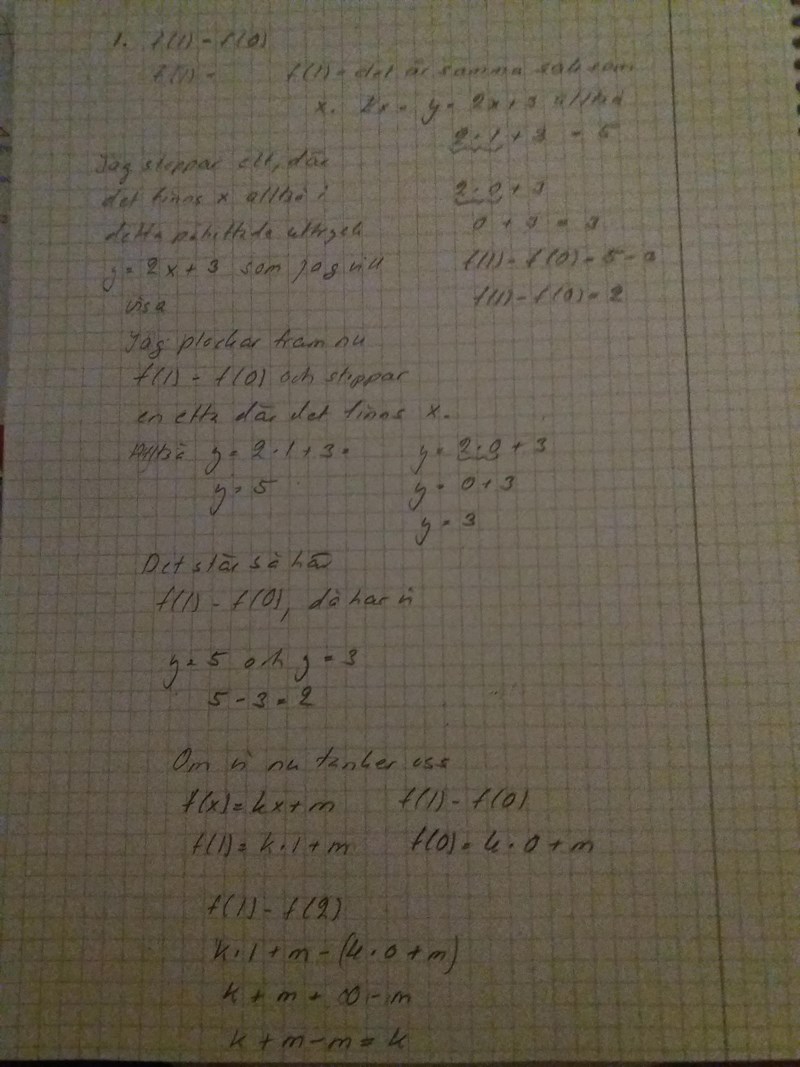 1. f(1) - f(0)
f(1) = f(1) = det är samma sak som
x. 2x = y = 2x + 3 alltså
2 · 1 + 3 = 5
Jag stoppar ett, där
det finns x alltså i
2 · 0 + 3
detta påhittade uttryck
0 + 3 = 3
y = 2x + 3 som jag vill
f(1) - f(0) = 5 - 3
visa
f(1) - f(0) = 2
Jag plockar fram nu
f(1) - f(0) och stoppar
en etta där det finns x.
Alltså y = 2 · 1 + 3 = y = 2 · 0 + 3
y = 5 y = 0 + 3
y = 3
Det står så här
f(1) - f(0), då har vi
y = 5 och y = 3
5 - 3 = 2
Om vi nu tänker oss
f(x) = kx + m f(1) - f(0)
f(1) = k · 1 + m f(0) = k · 0 + m
f(1) - f(2)
k · 1 + m - (k · 0 + m)
k + m + 0 - m
k + m - m = k